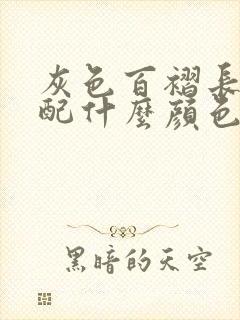 灰色百褶長
配什麼顏色
黑暗的天空